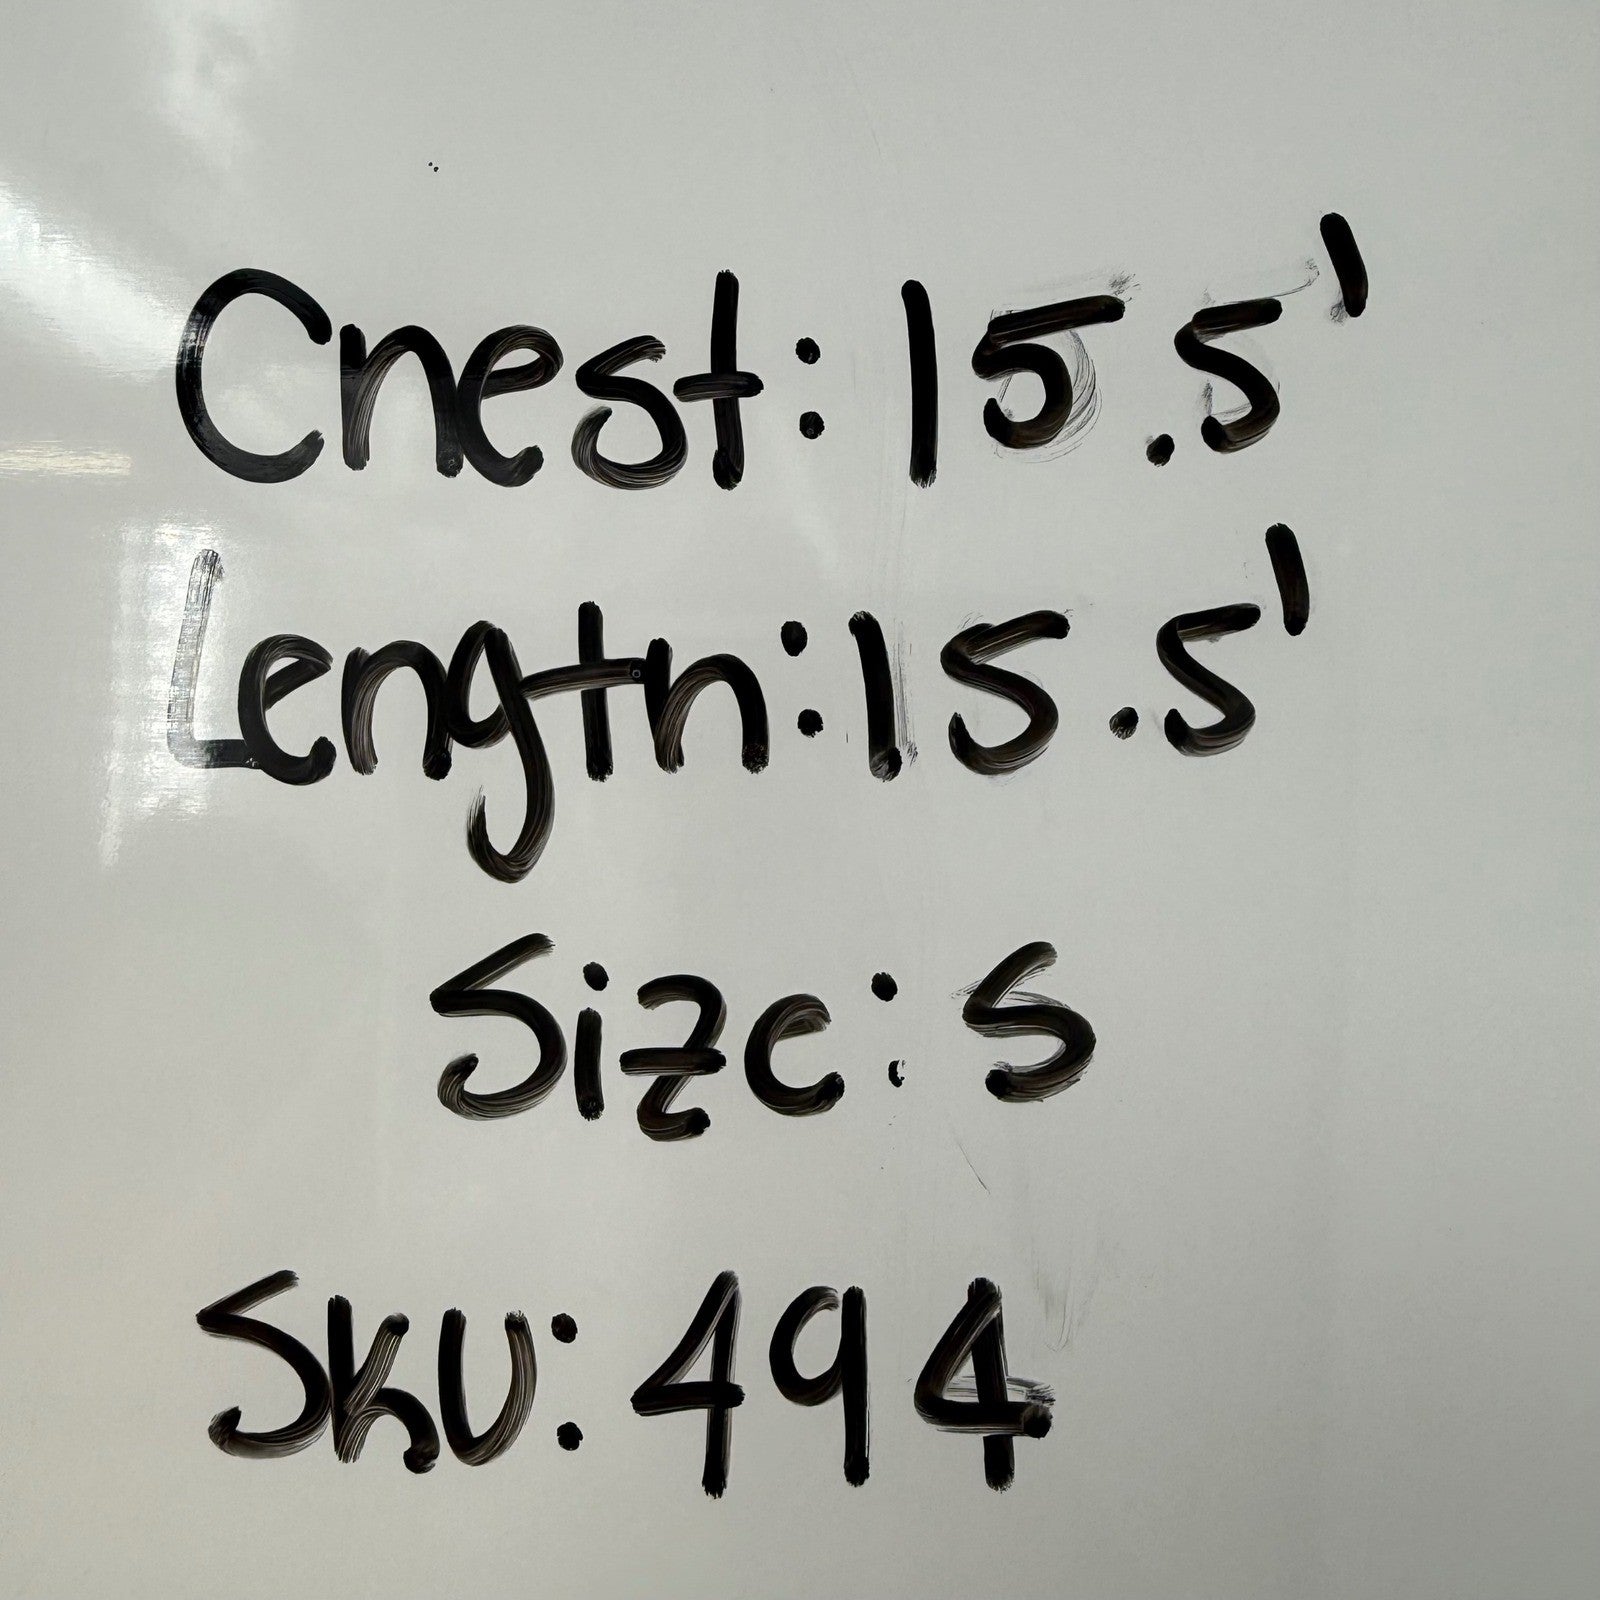 Chest: 15.5'
Length: 15.5'
Size: S
SKU: 494